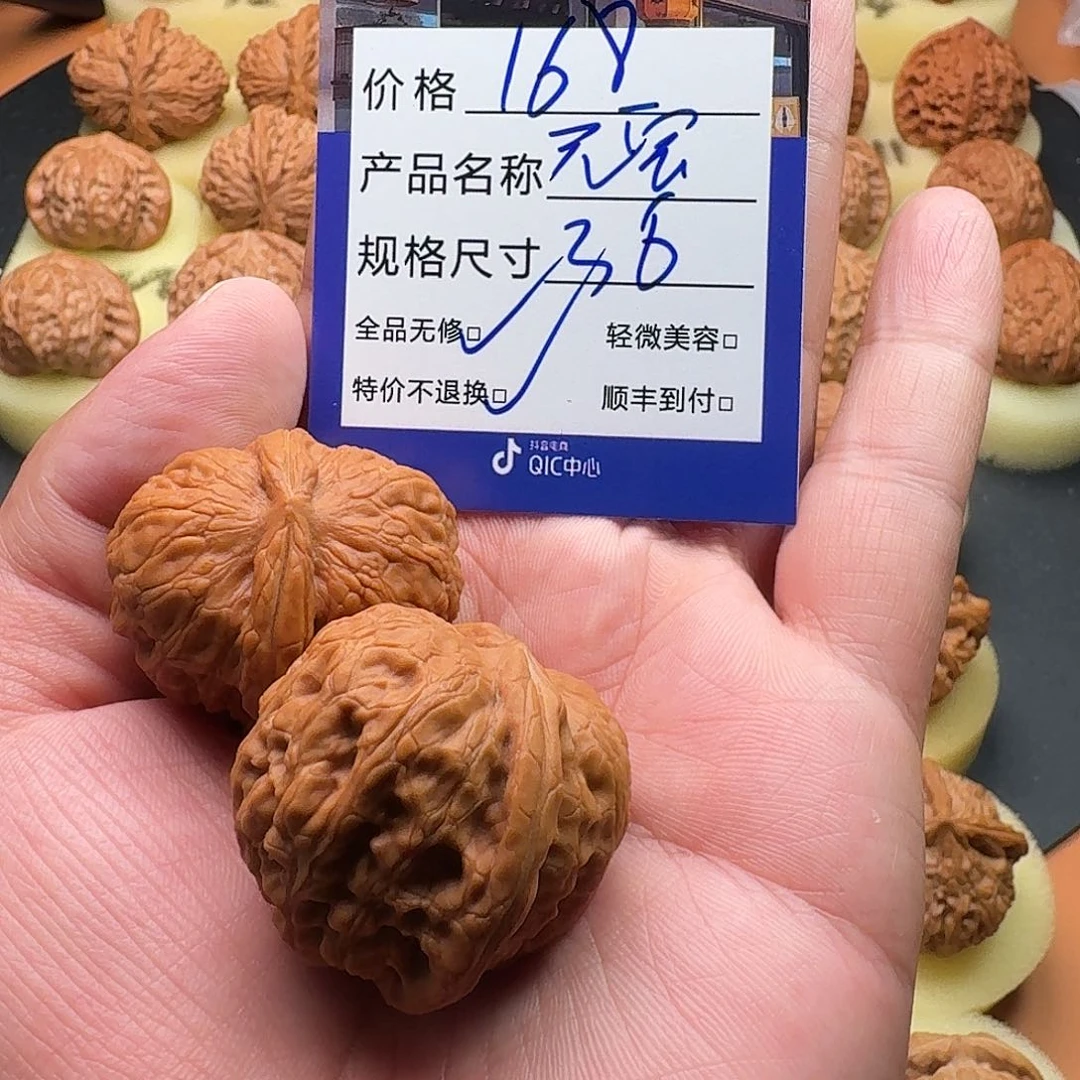 价格 168
产品名称 元宝
规格尺寸 36
全品无修□ 轻微美容□
特价不退换□ 顺丰到付□
抖音电商
QIC中心